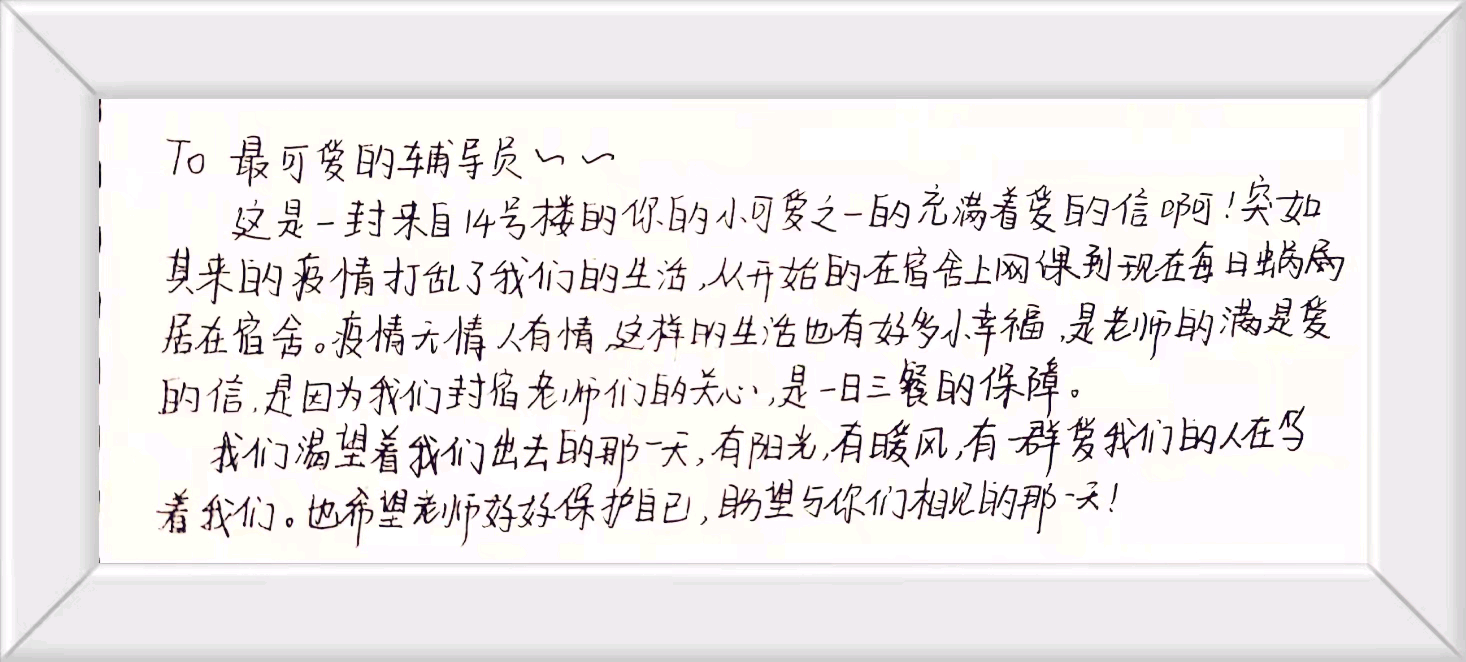 To 最可爱的辅导员~~
这是一封来自14号楼的你的小可爱之一的充满着爱的信啊!突如
其来的疫情打乱了我们的生活,从开始的在宿舍上网课到现在每日蜗局
居在宿舍。疫情无情人有情,这样的生活也有好多小幸福,是老师的满是爱
的信,是因为我们封宿老师们的关心,是一日三餐的保障。
我们渴望着我们出去的那一天,有阳光,有暖风,有一群爱我们的人在等
着我们。也希望老师好好保护自己,盼望与你们相见的那一天!